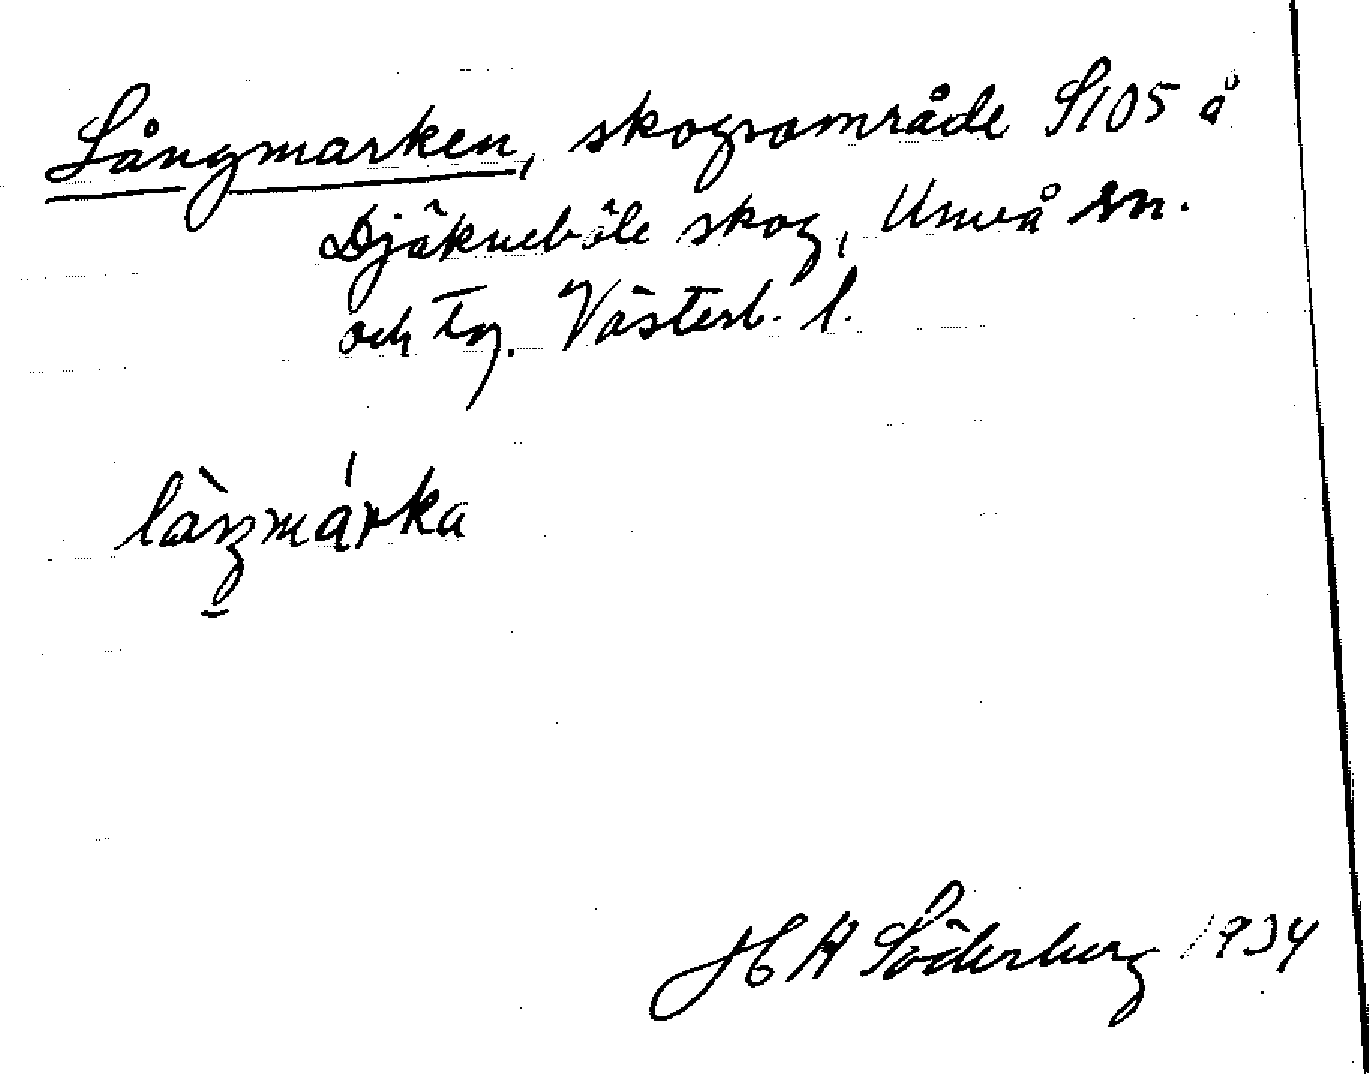 Långmarken, skogsområde S105 å
Djäkneböle skog, Umeå sn.
och tg. Västerb. l.
làŋmárka
H A Söderberg 1934